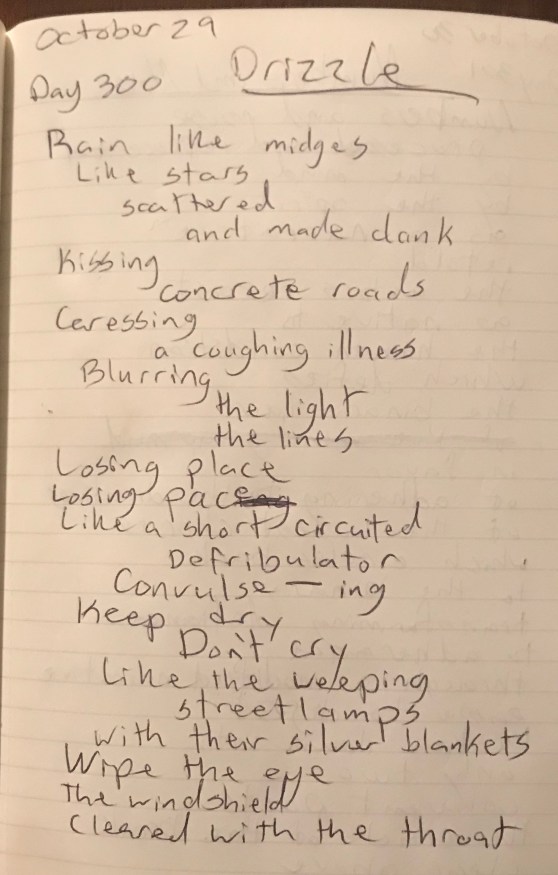 October 29
Day 300
Drizzle
Rain like midges
Like stars
scattered
and made dank
Kissing
concrete roads
Caressing
a coughing illness
Blurring
the light
the lines
Losing place
Losing pace
Like a short circuited
Defribulator
Convulse — ing
Keep dry
Don't cry
Like the weeping
streetlamps
with their silver blankets
Wipe the eye
The windshield
Cleared with the throat